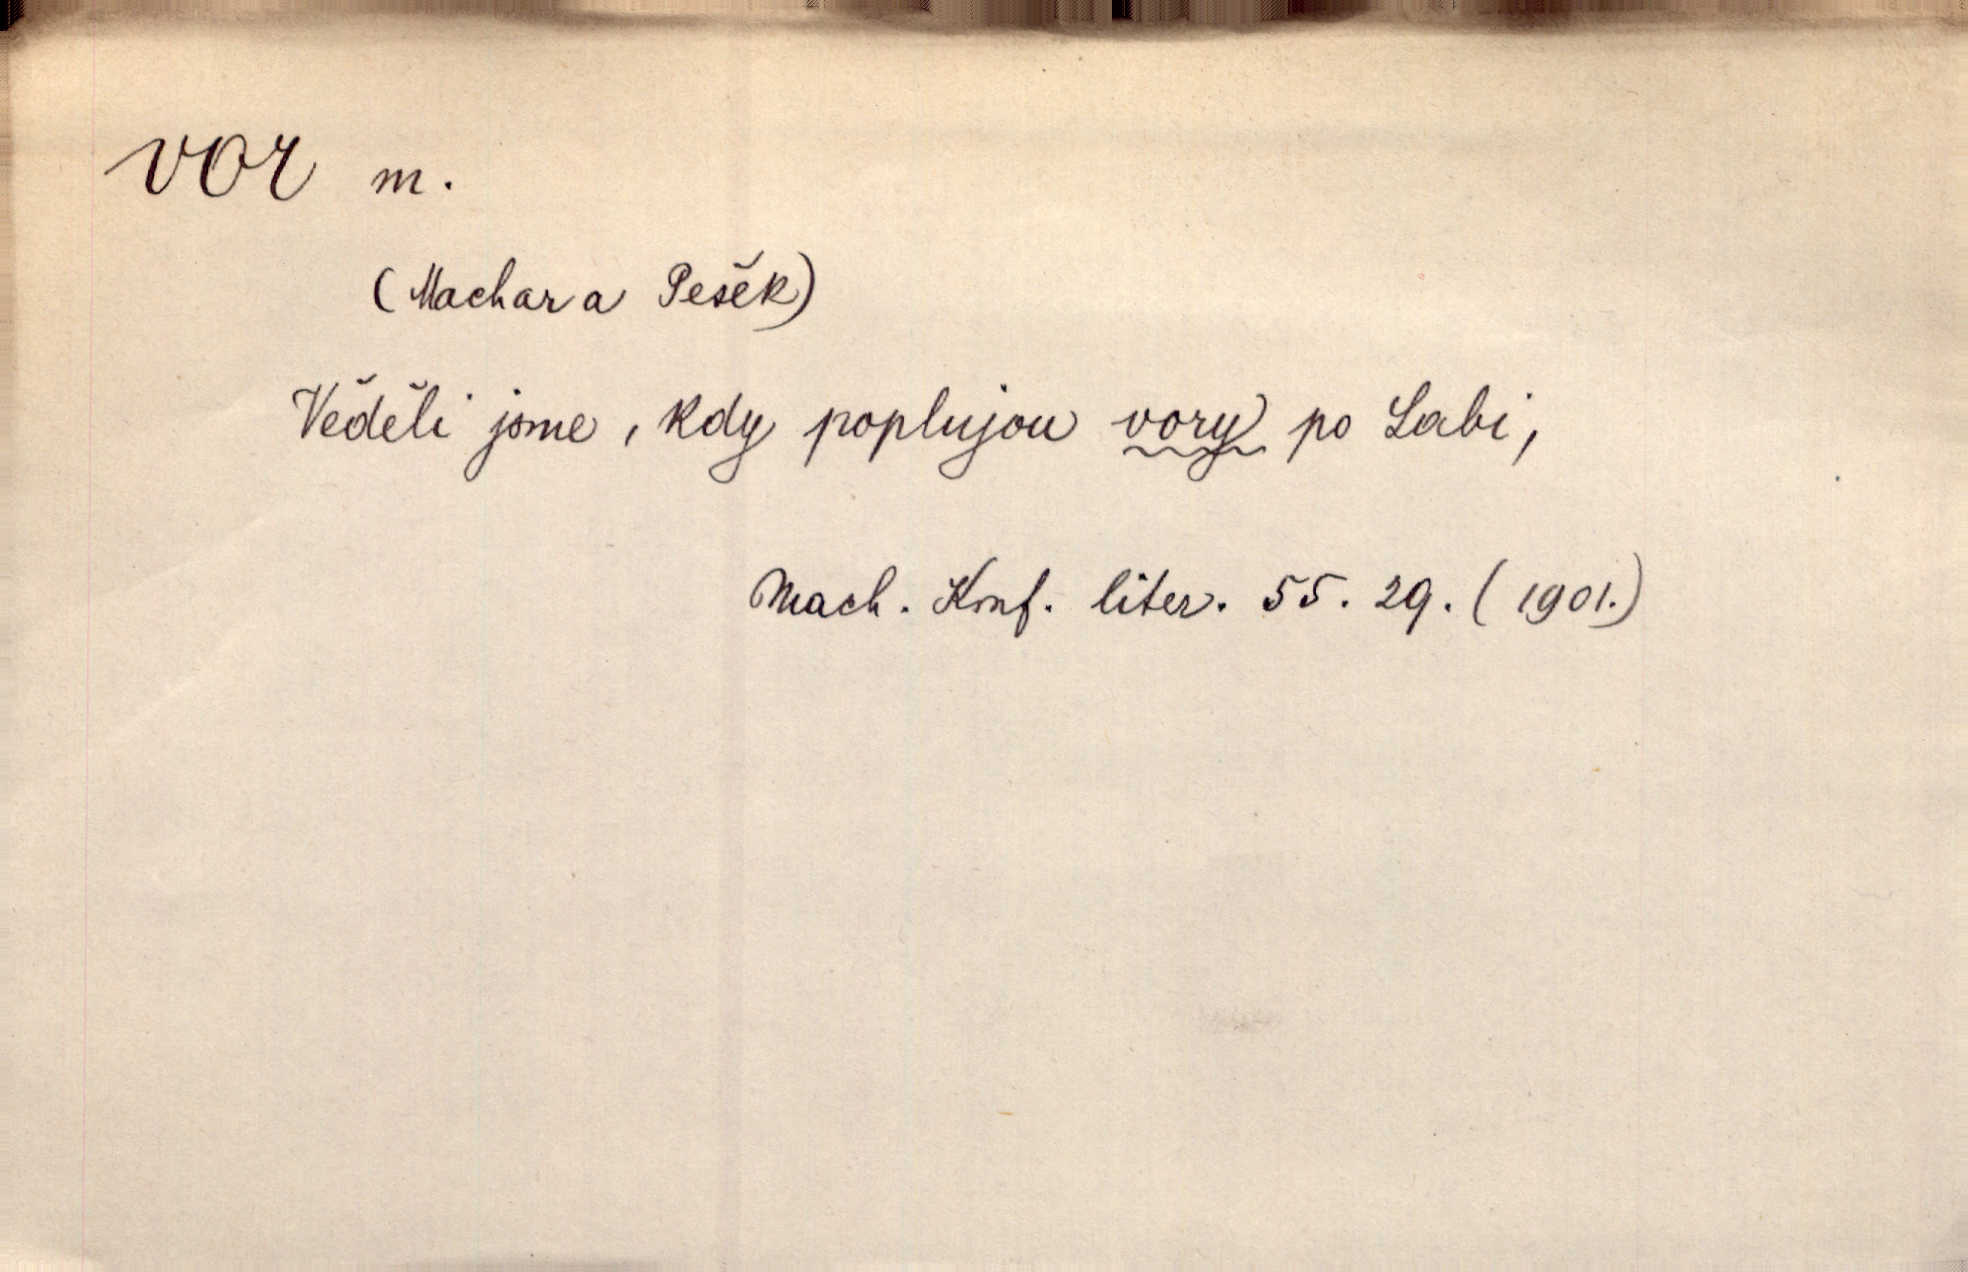 vor m.
(Machar a Pešek)
Věděli jsme, kdy poplujou vory po Labi,
Mach. Konf. liter. 55. 29. (1901.)